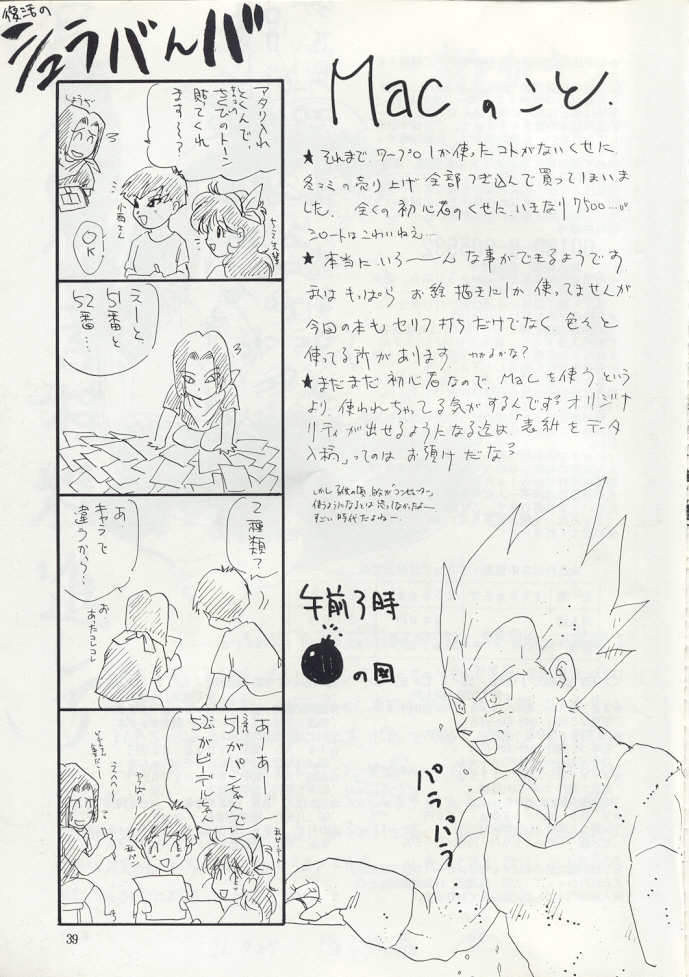 復活の
シュラバんバ
Macのこと.
★それまで、ワープロしか使ったコトがないくせに、
冬コミの売り上げ全部つぎ込んで買ってしまいま
した。全くの初心者のくせに、いきなり7500…。
シロートはこわいねえ…
★本当にいろ〜〜んな事ができるようです。
私はもっぱらお絵描きにしか使ってませんが、
今回の本もセリフ打ちだけでなく、色々と
使ってる所があります。わかるかな?
★まだまだ初心者なので、Macを使う、という
より、使われちゃってる気がするんですっ。オリジナ
リティが出せるようになる迄は「表紙をデータ
入稿」ってのはお預けだな?
すごい時代だよねー
アタリ入れ
とくんで、
貼てくれ
ます〜?
小西さん
OK
えーと、
51番と
52番…
2種類?
あ、
キャラで
違うから?
お
あったコレコレ
あーあー
51がパンちゃんで
52がビーデルちゃん
やっぱり
えへへー
午前3時
の図
パラパラ…
39